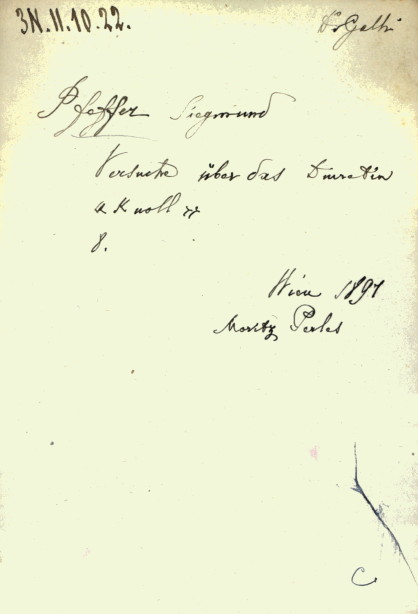 3N.II.10.22.
Dr Galli
Pfeffer Siegmund
Versuche über das Diuretin
« Knoll »
8.
Wien 1891
Moritz Perles
C